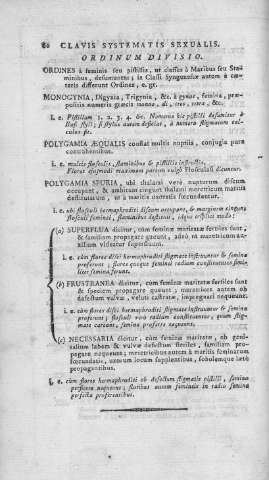 80 CLAVIS SYSTEMATIS SEXUALIS.
ORDINUM DIVISIO.
ORDINES à feminis seu pistillis, ut classes à Maribus seu Stai
minibus, desumuntur; in Classi Syngenesiæ autem à cæ-
teris differunt Ordines, e. gr.
MONOGYNIA, Digynia, Trigynia, &c. à gynæ, femina, præ-
positis numeris græcis mono, di, tres, tetra, &c.
i. e. Pistillum 1. 2. 3. 4. &c. Numerus hic pistilli desumitur à
Basi styli; si stylus autem deficiat, à numero stigmatum cal-
culus fit.
POLYGAMIA ÆQUALIS constat multis nuptiis, conjugia pura
contubernibus.
i. e. multis flosculis, staminibus & pistillis instructis.
Flores ejusmodi maximam partem vulgo Flosculosi dicuntur.
POLYGAMIA SPURIA, ubi thalami verè nuptorum discum
occupant, & ambitum cingunt thalami meretricum maritis
destitutarum, ut a maritis confœcundentur.
i. e. ubi flosculi hermaphroditi discum occupant, & marginem cingunt
flosculi feminini, staminibus destituti, idque triplici modo:
(a) SUPERFLUA dicitur, cum feminæ maritatæ fertiles sunt,
& familiam propagare queunt, adeò ut meretricum au-
xilium videatur superfluum.
i. e. cùm flores disci hermaphroditi stigmate instruuntur & semina
proferunt; flores quoque feminei radium constituentes simi-
liter semina ferunt.
(b) FRUSTRANEA dicitur, cum feminæ maritatæ fertiles sunt
& speciem propagare queunt; meretrices autem ob
defectum vulvæ, veluti castratæ, impregnari nequeunt.
i. e. cùm flores disci hermaphroditi stigmate instruuntur & semina
proferunt; flosculi verò radium constituentes, quum stig-
mate careant, semina proferre nequeunt.
(c) NECESSARIA dicitur, cùm feminæ maritatæ, ob geni-
talium labem & vulvæ defectum steriles, familiam pro-
pagare nequeunt; meretricibus autem à maritis feminarum
fœcundatis, uxorum locum supplentibus, sobolemque lætè
propagantibus.
i. e. cùm flores hermaphroditi ob defectum stigmatis pistilli, semina
perficere nequeunt; floribus autem femineis in radio semina
perfecta proferentibus.